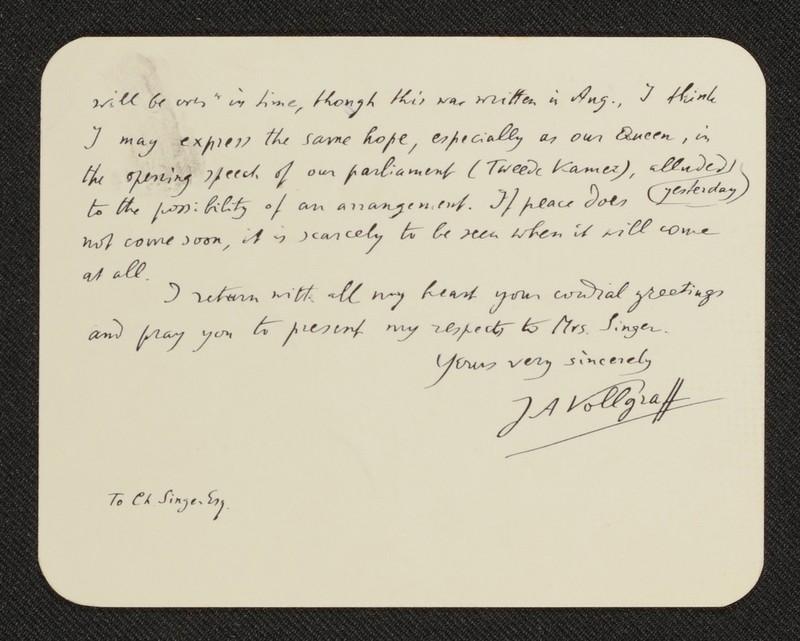 will be over" in time, though this was written in Aug., I think
I may express the same hope, especially as our Queen, in
the opening speech of our parliament (Tweede Kamer), alluded
(yesterday)
to the possibility of an arrangement. If peace does
not come soon, it is scarcely to be seen when it will come
at all.
I return with all my heart your cordial greetings
and pray you to present my respects to Mrs. Singer.
Yours very sincerely
J A Vollgraff
To Ch. Singer Esq.